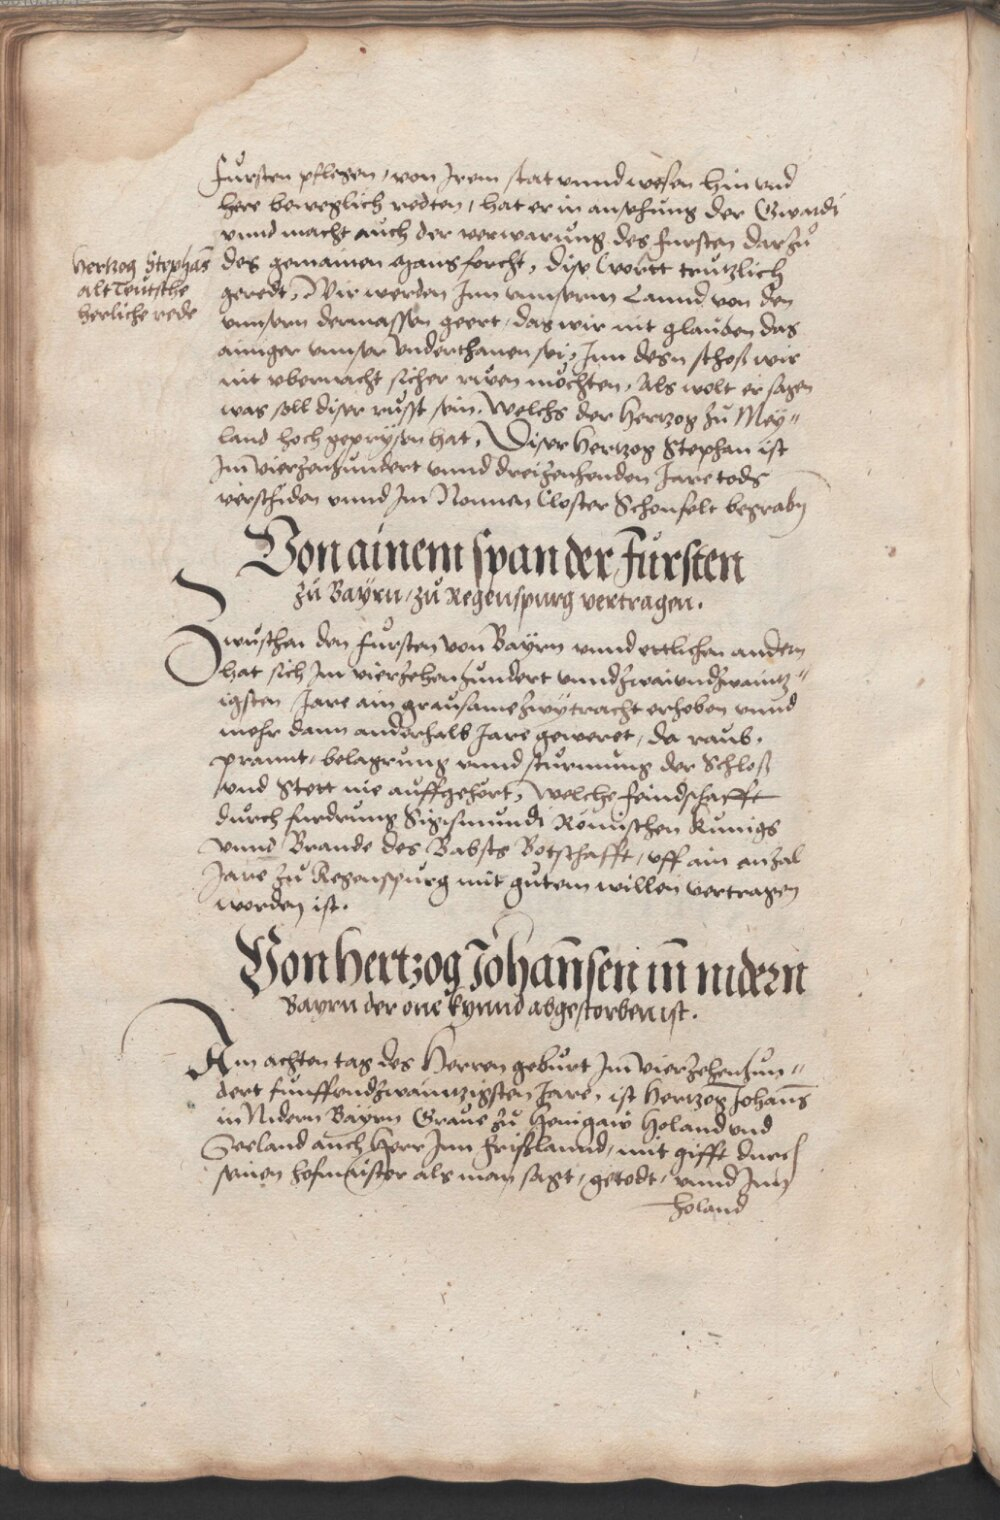 fürsten pflegen, von Irem stat unnd wesen hin und
here beweglich redten, hat er in ansehung der Gwardi
unnd macht auch der verwarung des fursten dar zů
des gemainen mans forcht, dise wortt trutzlich
geredt, Wir werden Inn unnserm Lannd von den
unnsern dermassen geert, das wir nit glauben das
ainiger unnser Underthanen sei, Inn desn schoß wir
nit ubernacht sicher rüen möchten, Als wolt er sagen
was soll diser russt sein. Welchs der Hertzog zů Mey"
land hoch geprysen hat, Diser Hertzog Stephan ist
Im vierzenhundert unnd dreizenhenden Jare tods
verschiden unnd Im Nonnen Closter Schonfelt begrabn
Hertzog Stephans
alt Teutsche
herliche rede
Von ainem span der Fürsten
zů Bayrn, zů Regenspurg vertragen.
Zwuschen den fürsten von Bayrn unnd ettlichen andern
hat sich Im vierzehenhundert unndzwaiundzwaintz"
igsten Jare ain grausame zwytracht erhoben unnd
mehr dann anderhalb Jare geweret, da raub,
prannt, belagrung unnd sturmung der Schloß
und Stett nie auffgehört, welche feindschafft
durch furdrung Sigismundi Römischen Kunigs
unnd Brande des Babsts Botschafft, uff ain anzal
Jare zů Regenspurg mit gutem willen vertragen
worden ist.
Von Hertzog Johannsen in nidern
Bayrn der one kynnd abgestorben ist.
Am achten tag des Herren geburt Im vierzehenhun"
dert funffundzwaintzigsten Jare, ist Hertzog Johanns
in Nidern Bayrn Graue zů Henigaw Holand und
Seeland auch Herr Inn Frißlannd, mit gifft durch
seinen hofmaister als man sagt, getodt, unnd Inn
Holand